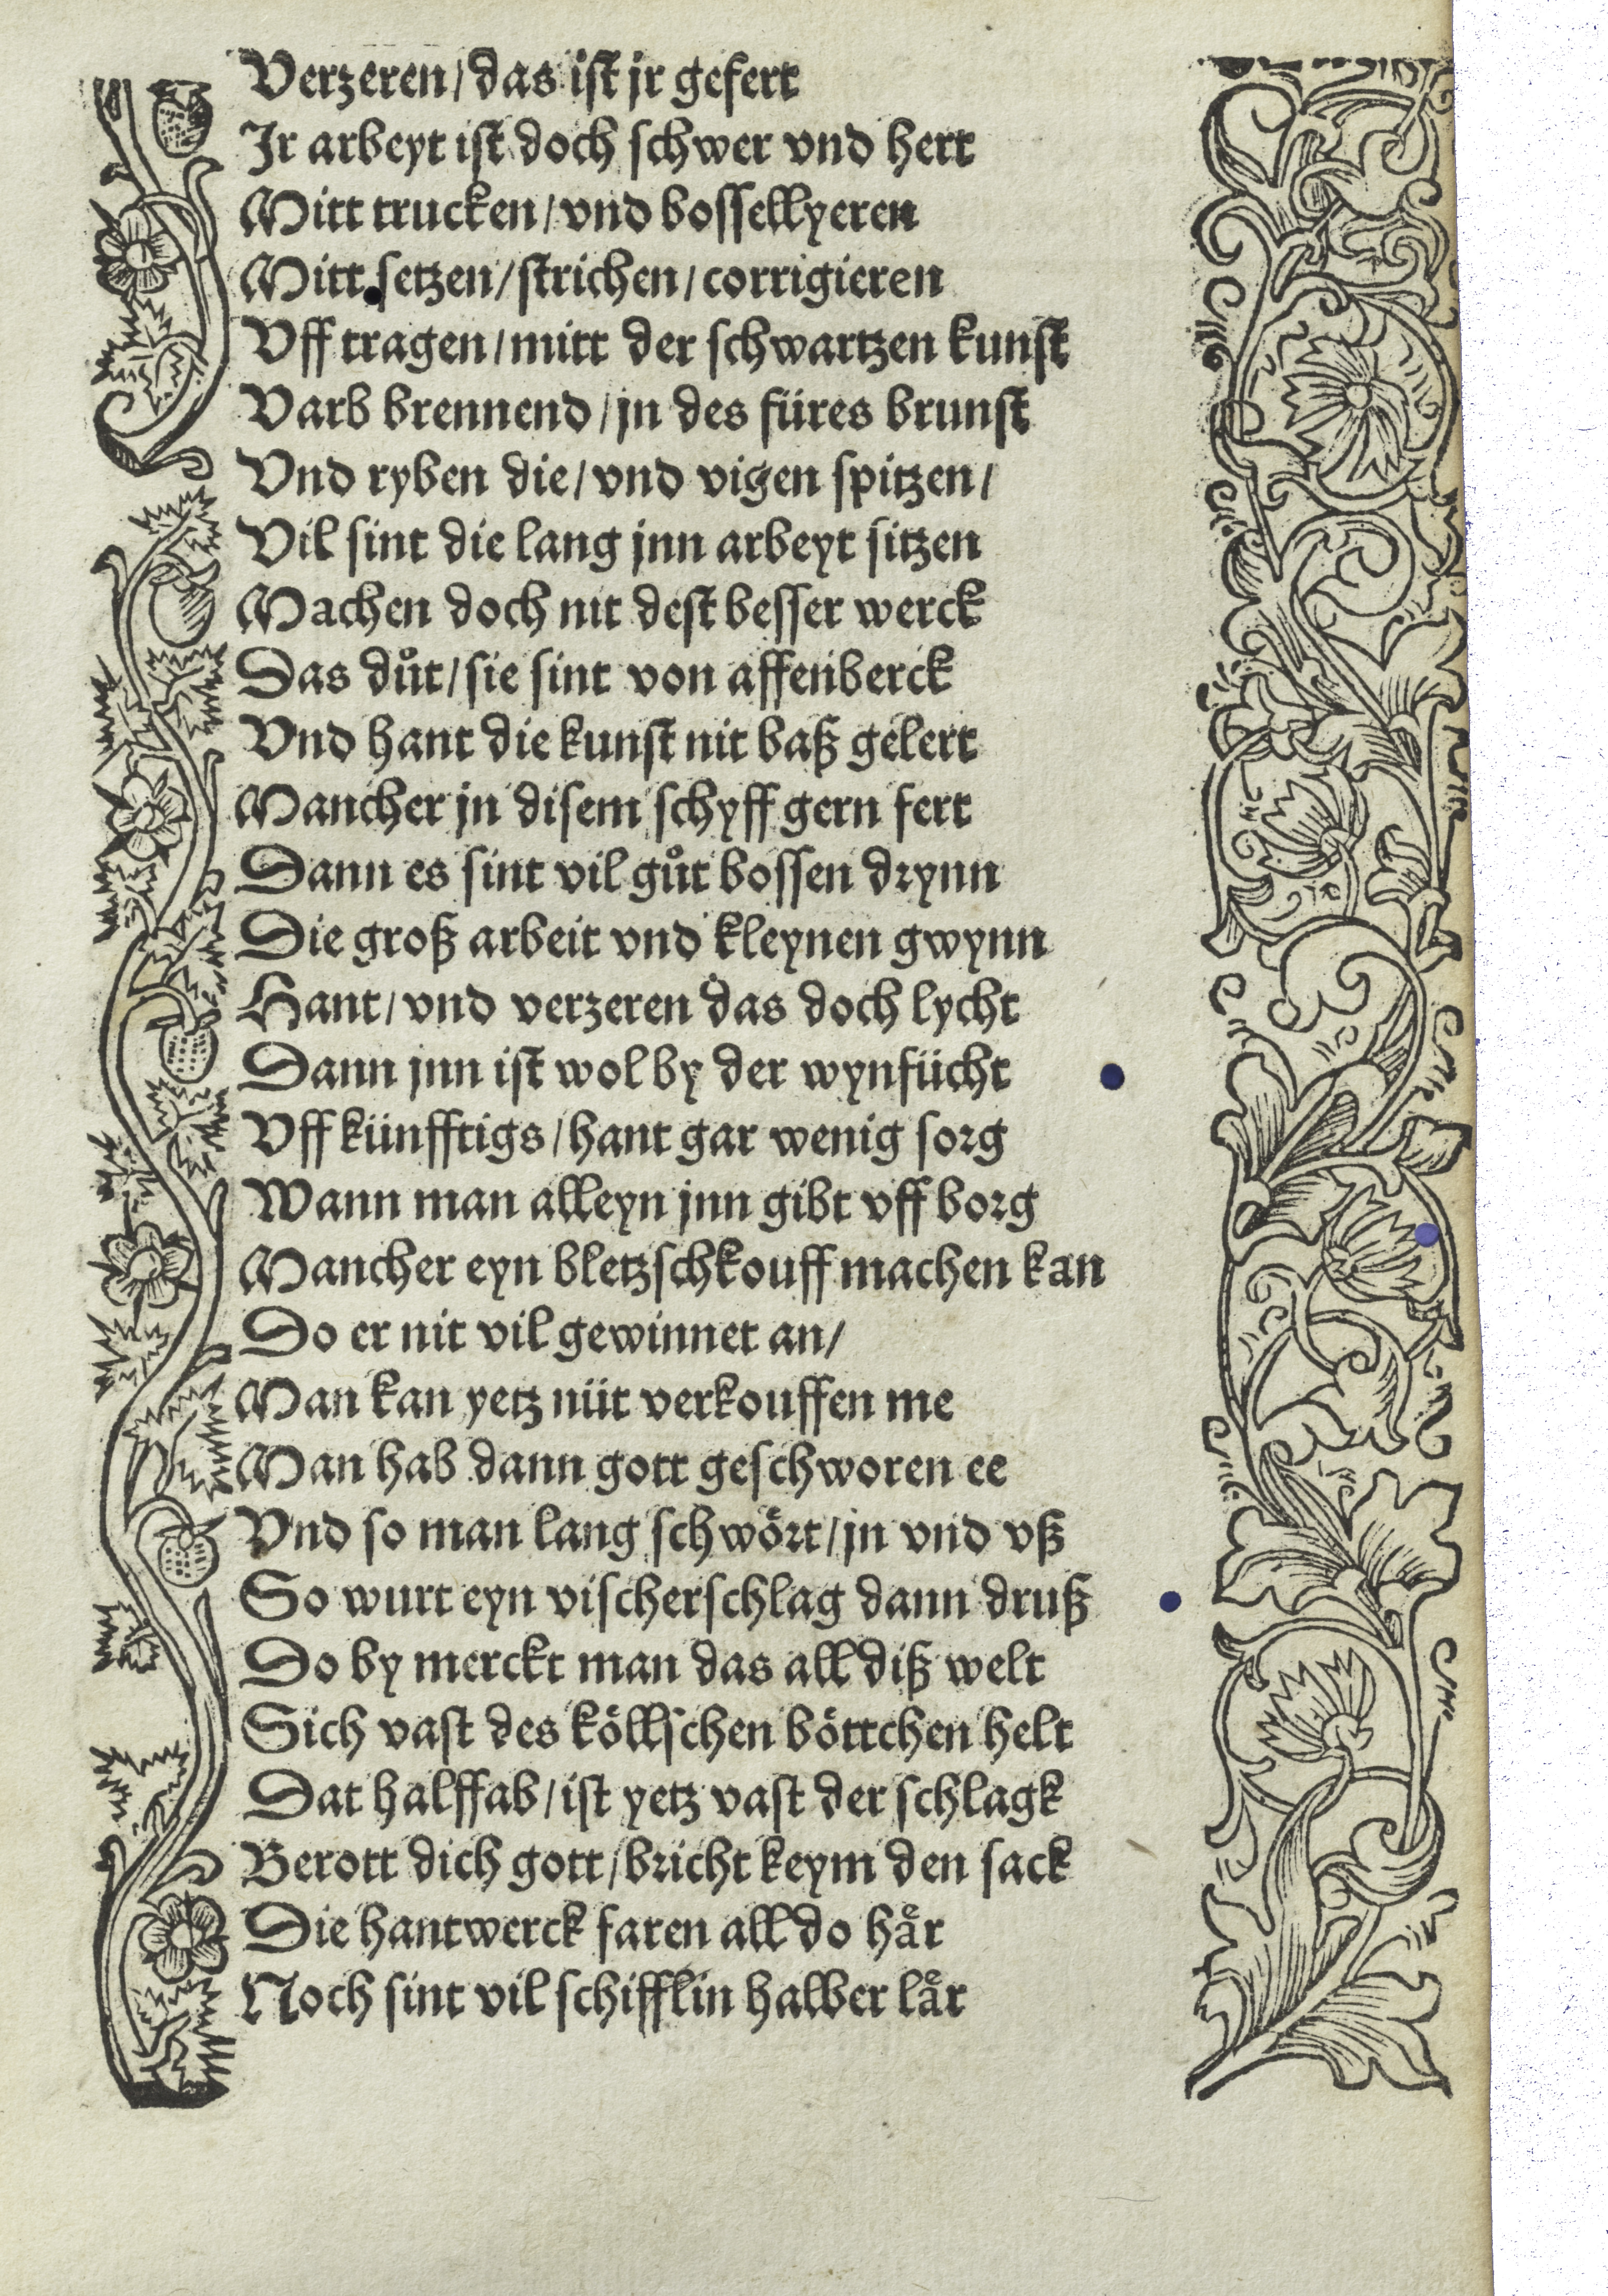 Verzeren/das ist jr gefert
Jr arbeyt ist doch schwer vnd hert
Mitt trucken/vnd bossellyeren
Mitt setzen/strichen/corrigieren
Vff tragen/mitt der schwartzen kunst
Varb brennend/jn des füres brunst
Vnd ryben die/vnd vigen spitzen/
Vil sint die lang jnn arbeyt sitzen
Machen doch nit dest besser werck
Das důt/sie sint von affenberck
Vnd hant die kunst nit baß gelert
Mancher jn disem schyff gern fert
Dann es sint vil gůt bossen drynn
Die groß arbeit vnd kleynen gwynn
Hant/vnd verzeren das doch lycht
Dann jnn ist wol by der wynfücht
Vff künfftigs/hant gar wenig sorg
Wann man alleyn jnn gibt vff borg
Mancher eyn bletzschkouff machen kan
Do er nit vil gewinnet an/
Man kan yetz nüt verkouffen me
Man hab dann gott geschworen ee
Vnd so man lang schwoͤrt/jn vnd vß
So wurt eyn vischerschlag dann druß
Do by merckt man das all diß welt
Sich vast des koͤllschen boͤttchen helt
Dat halff ab/ist yetz vast der schlagk
Berott dich gott/bricht keym den sack
Die hantwerck faren all do haͤr
Noch sint vil schifflin halber laͤr